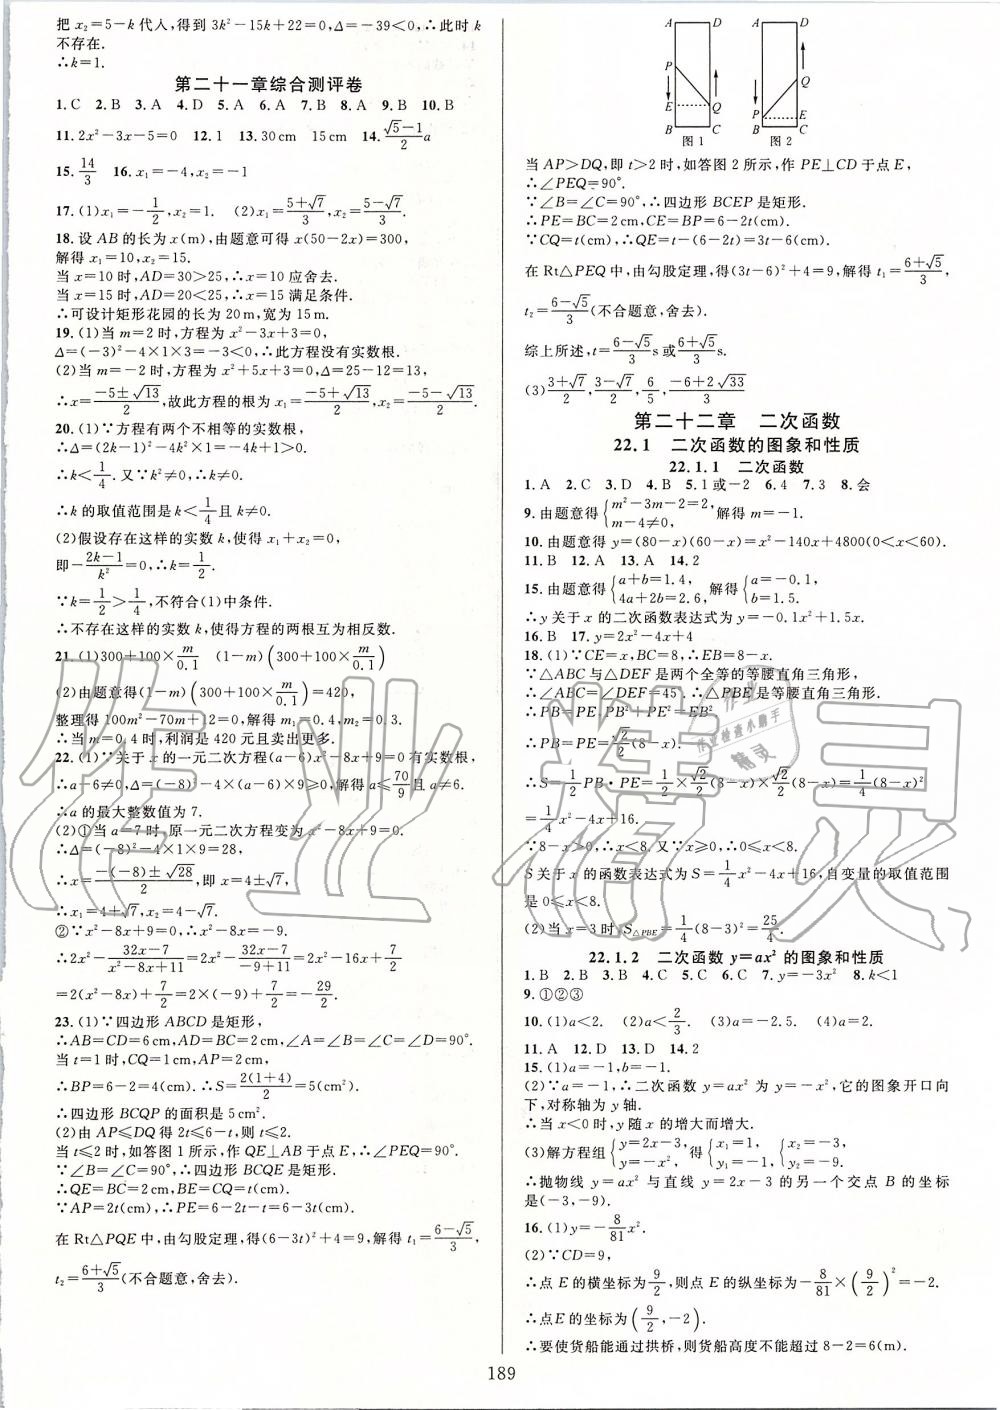 把 x₂=5-k代人,得到 3k²-15k+22=0,Δ=-39<0,∴此时 k
不存在.
∴k=1.
第二十一章综合测评卷
1.C 2.B 3.A 4.D 5.A 6.A 7.B 8.A 9.B 10.B
11.2x²-3x-5=0 12.1 13.30cm 15cm 14.(√5-1)/2 a
15.14/3 16.x₁=-4,x₂=-1
17.(1)x₁=-1/2,x₂=1. (2)x₁=(5+√7)/3,x₂=(5-√7)/3.
18.设 AB 的长为 x(m),由题意可得 x(50-2x)=300,
解得 x₁=10,x₂=15.
当 x=10 时,AD=30>25,∴x=10 应舍去.
当 x=15 时,AD=20<25,∴x=15 满足条件.
∴可设计矩形花园的长为 20m,宽为 15m.
19.(1)当 m=2 时,方程为 x²-3x+3=0,
Δ=(-3)²-4×1×3=-3<0,∴此方程没有实数根.
(2)当 m=-2 时,方程为 x²+5x+3=0,Δ=25-12=13,
∴x=(-5±√13)/2,故此方程的根为 x₁=(-5+√13)/2,x₂=(-5-√13)/2.
20.(1)∵方程有两个不相等的实数根,
∴Δ=(2k-1)²-4k²×1=-4k+1>0,
∴k<1/4.又∵k²≠0,∴k≠0.
∴k 的取值范围是 k<1/4 且 k≠0.
(2)假设存在这样的实数 k,使得 x₁+x₂=0,
即-(2k-1)/k²=0,∴k=1/2.
∵k=1/2>1/4,不符合(1)中条件.
∴不存在这样的实数 k,使得方程的两根互为相反数.
21.(1)300+100×m/0.1 (1-m)(300+100×m/0.1)
(2)由题意得(1-m)(300+100×m/0.1)=420,
整理得 100m²-70m+12=0,解得 m₁=0.4,m₂=0.3.
∴当 m=0.4 时,利润是 420 元且卖出更多.
22.(1)∵关于 x 的一元二次方程(a-6)x²-8x+9=0 有实数根,
∴a-6≠0,Δ=(-8)²-4×(a-6)×9≥0,解得 a≤70/9 且 a≠6.
∴a 的最大整数值为 7.
(2)①当 a=7 时,原一元二次方程变为 x²-8x+9=0.
∴Δ=(-8)²-4×1×9=28,
∴x=(-(-8)±√28)/2,即 x=4±√7,
∴x₁=4+√7,x₂=4-√7.
②∵x²-8x+9=0,∴x²-8x=-9.
∴2x²-(32x-7)/(x²-8x+11)=2x²-(32x-7)/(-9+11)=2x²-16x+7/2
=2(x²-8x)+7/2=2×(-9)+7/2=-29/2.
23.(1)∵四边形 ABCD 是矩形,
∴AB=CD=6cm,AD=BC=2cm,∠A=∠B=∠C=∠D=90°.
当 t=1 时,CQ=1cm,AP=2cm,
∴BP=6-2=4(cm).∴S=2(1+4)/2=5(cm²).
∴四边形 BCQP 的面积是 5cm².
(2)由 AP≤DQ 得 2t≤6-t,则 t≤2.
当 t≤2 时,如答图 1 所示,作 QE⊥AB 于点 E,∴∠PEQ=90°.
∵∠B=∠C=90°,∴四边形 BCQE 是矩形.
∴QE=BC=2cm,BE=CQ=t(cm).
∵AP=2t(cm),∴PE=6-2t-t=6-3t(cm).
在 Rt△PQE 中,由勾股定理,得(6-3t)²+4=9,解得 t₁=(6-√5)/3,
t₂=(6+√5)/3(不合题意,舍去).
A D A D
P
Q
E Q P E
B C B C
图 1 图 2
当 AP>DQ,即 t>2 时,如答图 2 所示,作 PE⊥CD 于点 E,
∴∠PEQ=90°.
∵∠B=∠C=90°,∴四边形 BCEP 是矩形.
∴PE=BC=2cm,CE=BP=6-2t(cm).
∵CQ=t(cm),∴QE=t-(6-2t)=3t-6(cm).
在 Rt△PEQ 中,由勾股定理,得(3t-6)²+4=9,解得 t₁=(6+√5)/3,
t₂=(6-√5)/3(不合题意,舍去).
综上所述,t=(6-√5)/3 s或(6+√5)/3 s.
(3)(3+√7)/2,(3-√7)/2,6/5,(-6+2√33)/3
第二十二章 二次函数
22.1 二次函数的图象和性质
22.1.1 二次函数
1.A 2.C 3.D 4.B 5.1或-2 6.4 7.3 8.会
9.由题意得{m²-3m-2=2, m-4≠0, 解得 m=-1.
10.由题意得 y=(80-x)(60-x)=x²-140x+4800(0<x<60).
11.B 12.A 13.A 14.2
15.由题意得{a+b=1.4, 4a+2b=2.6, 解得{a=-0.1, b=1.5.
∴y 关于 x 的二次函数表达式为 y=-0.1x²+1.5x.
16.B 17.y=2x²-4x+4
18.(1)∵CE=x,BC=8,∴EB=8-x.
∵△ABC 与△DEF 是两个全等的等腰直角三角形,
∴∠ABC=∠DEF=45°.∴△PBE 是等腰直角三角形.
∴PB=PE,PB²+PE²=EB²
∴PB=PE=√2/2(8-x).
∴S=1/2 PB·PE=1/2×√2/2(8-x)×√2/2(8-x)=1/4(8-x)²
=1/4x²-4x+16.
∵8-x>0,∴x<8.又∵x≥0,∴0≤x<8.
S 关于 x 的函数表达式为 S=1/4x²-4x+16,自变量的取值范围
是 0≤x<8.
(2)当 x=3 时,S△PBE=1/4(8-3)²=25/4.
22.1.2 二次函数 y=ax² 的图象和性质
1.B 2.B 3.B 4.C 5.C 6.C 7.y=-3x² 8.k<1
9.①②③
10.(1)a<2. (2)a<2/3. (3)a=-2.5. (4)a=2.
11.A 12.D 13.D 14.2
15.(1)a=-1,b=-1.
(2)∵a=-1,∴二次函数 y=ax² 为 y=-x²,它的图象开口向
下,对称轴为 y 轴.
∴当 x<0 时,y 随 x 的增大而增大.
(3)解方程组{y=2x-3, y=-x², 得{x₁=1, y₁=-1, {x₂=-3, y₂=-9.
∴抛物线 y=ax² 与直线 y=2x-3 的另一个交点 B 的坐标
是(-3,-9).
16.(1)y=-8/81x².
(2)∵CD=9,
∴点 E 的横坐标为9/2,则点 E 的纵坐标为-8/81×(9/2)²=-2.
∴点E 的坐标为(9/2,-2).
∴要使货船能通过拱桥,则货船高度不能超过 8-2=6(m).
189
作业精灵